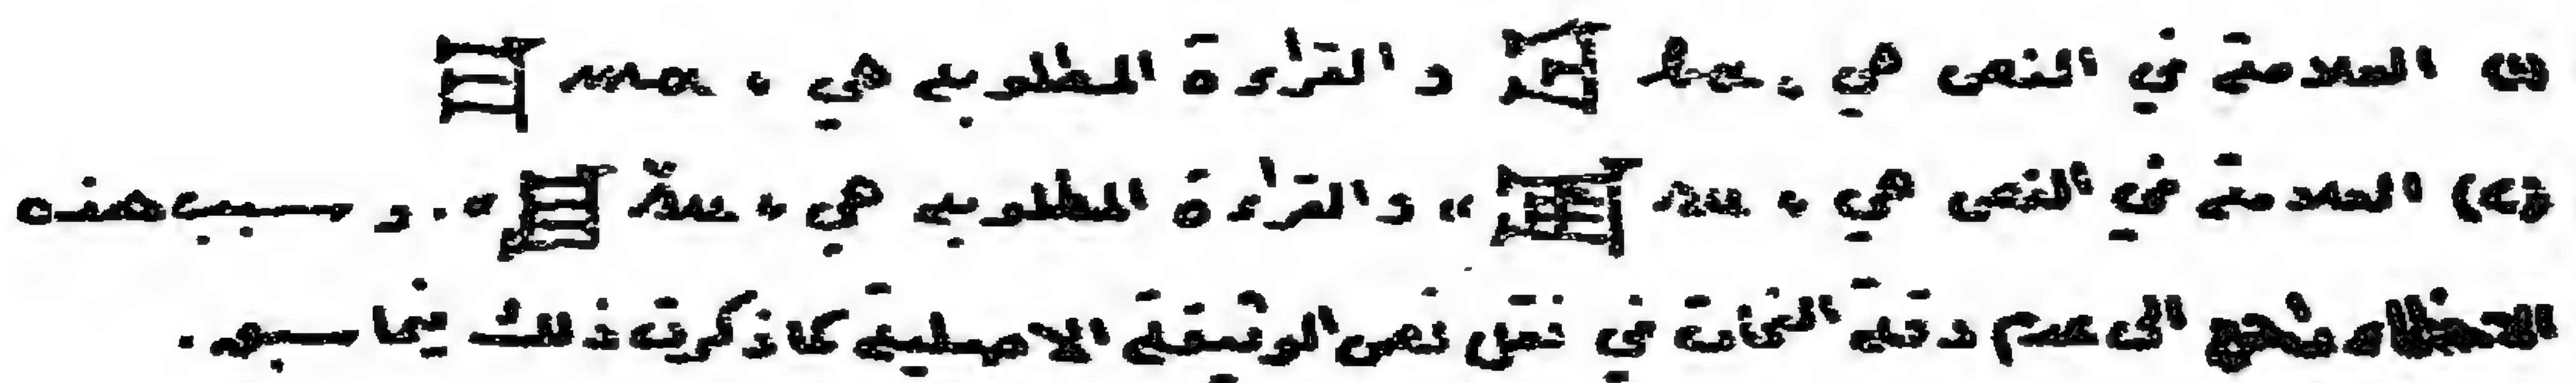 العلامة في النص هي « والقراءة المطلوبة هي «
العلامة في النص هي « » والقراءة المطلوبة هي « » . وسبب هذه
الاخطاء يرجع الى عدم دقة النحات في نقل نص الوثيقة الاصلية كما ذكرت ذلك فيما سبق .